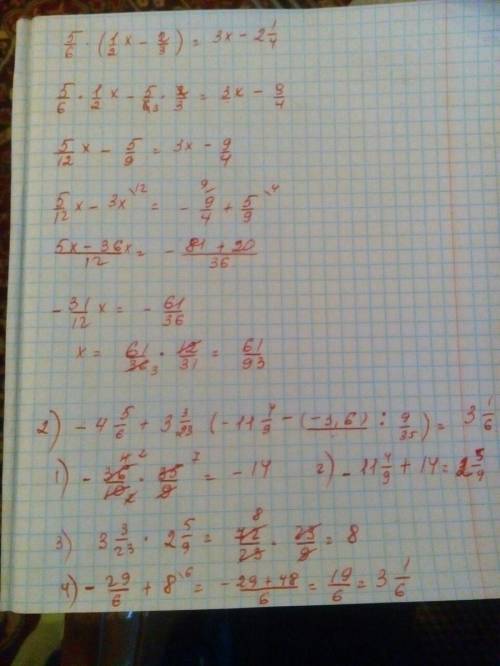 5/6 · (1/2 x − 2/3) = 3x − 2 1/4
5/6 · 1/2 x − 5/6 3 · 2/3 = 3x − 9/4
5/12 x − 5/9 = 3x − 9/4
5/12 x − 3x \12 = − 9/ 9/4 + 5/9 \4
5x − 36x/12 = − 81 + 20/36
− 31/12 x = − 61/36
x = 61/36 3 · 12/31 = 61/93
2) − 4 5/6 + 3 3/23 (−11 4/9 − (−3,6) : 9/35) = 3 1/6
1) − 36/10 4 2 2 · 35/9 7 = − 14 2) − 11 4/9 + 14 = 2 5/9
3) 3 3/23 · 2 5/9 = 72/23 8 · 23/9 = 8
4) − 29/6 + 8 \6 = − 29 + 48/6 = 19/6 = 3 1/6